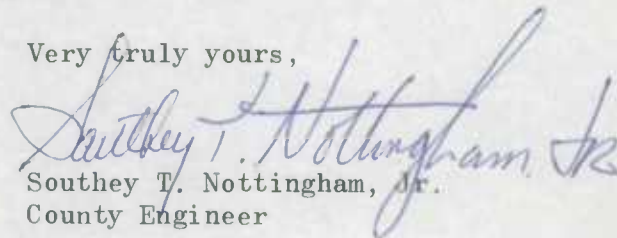 Very truly yours,
Southey T. Nottingham Jr
Southey T. Nottingham, Jr.
County Engineer